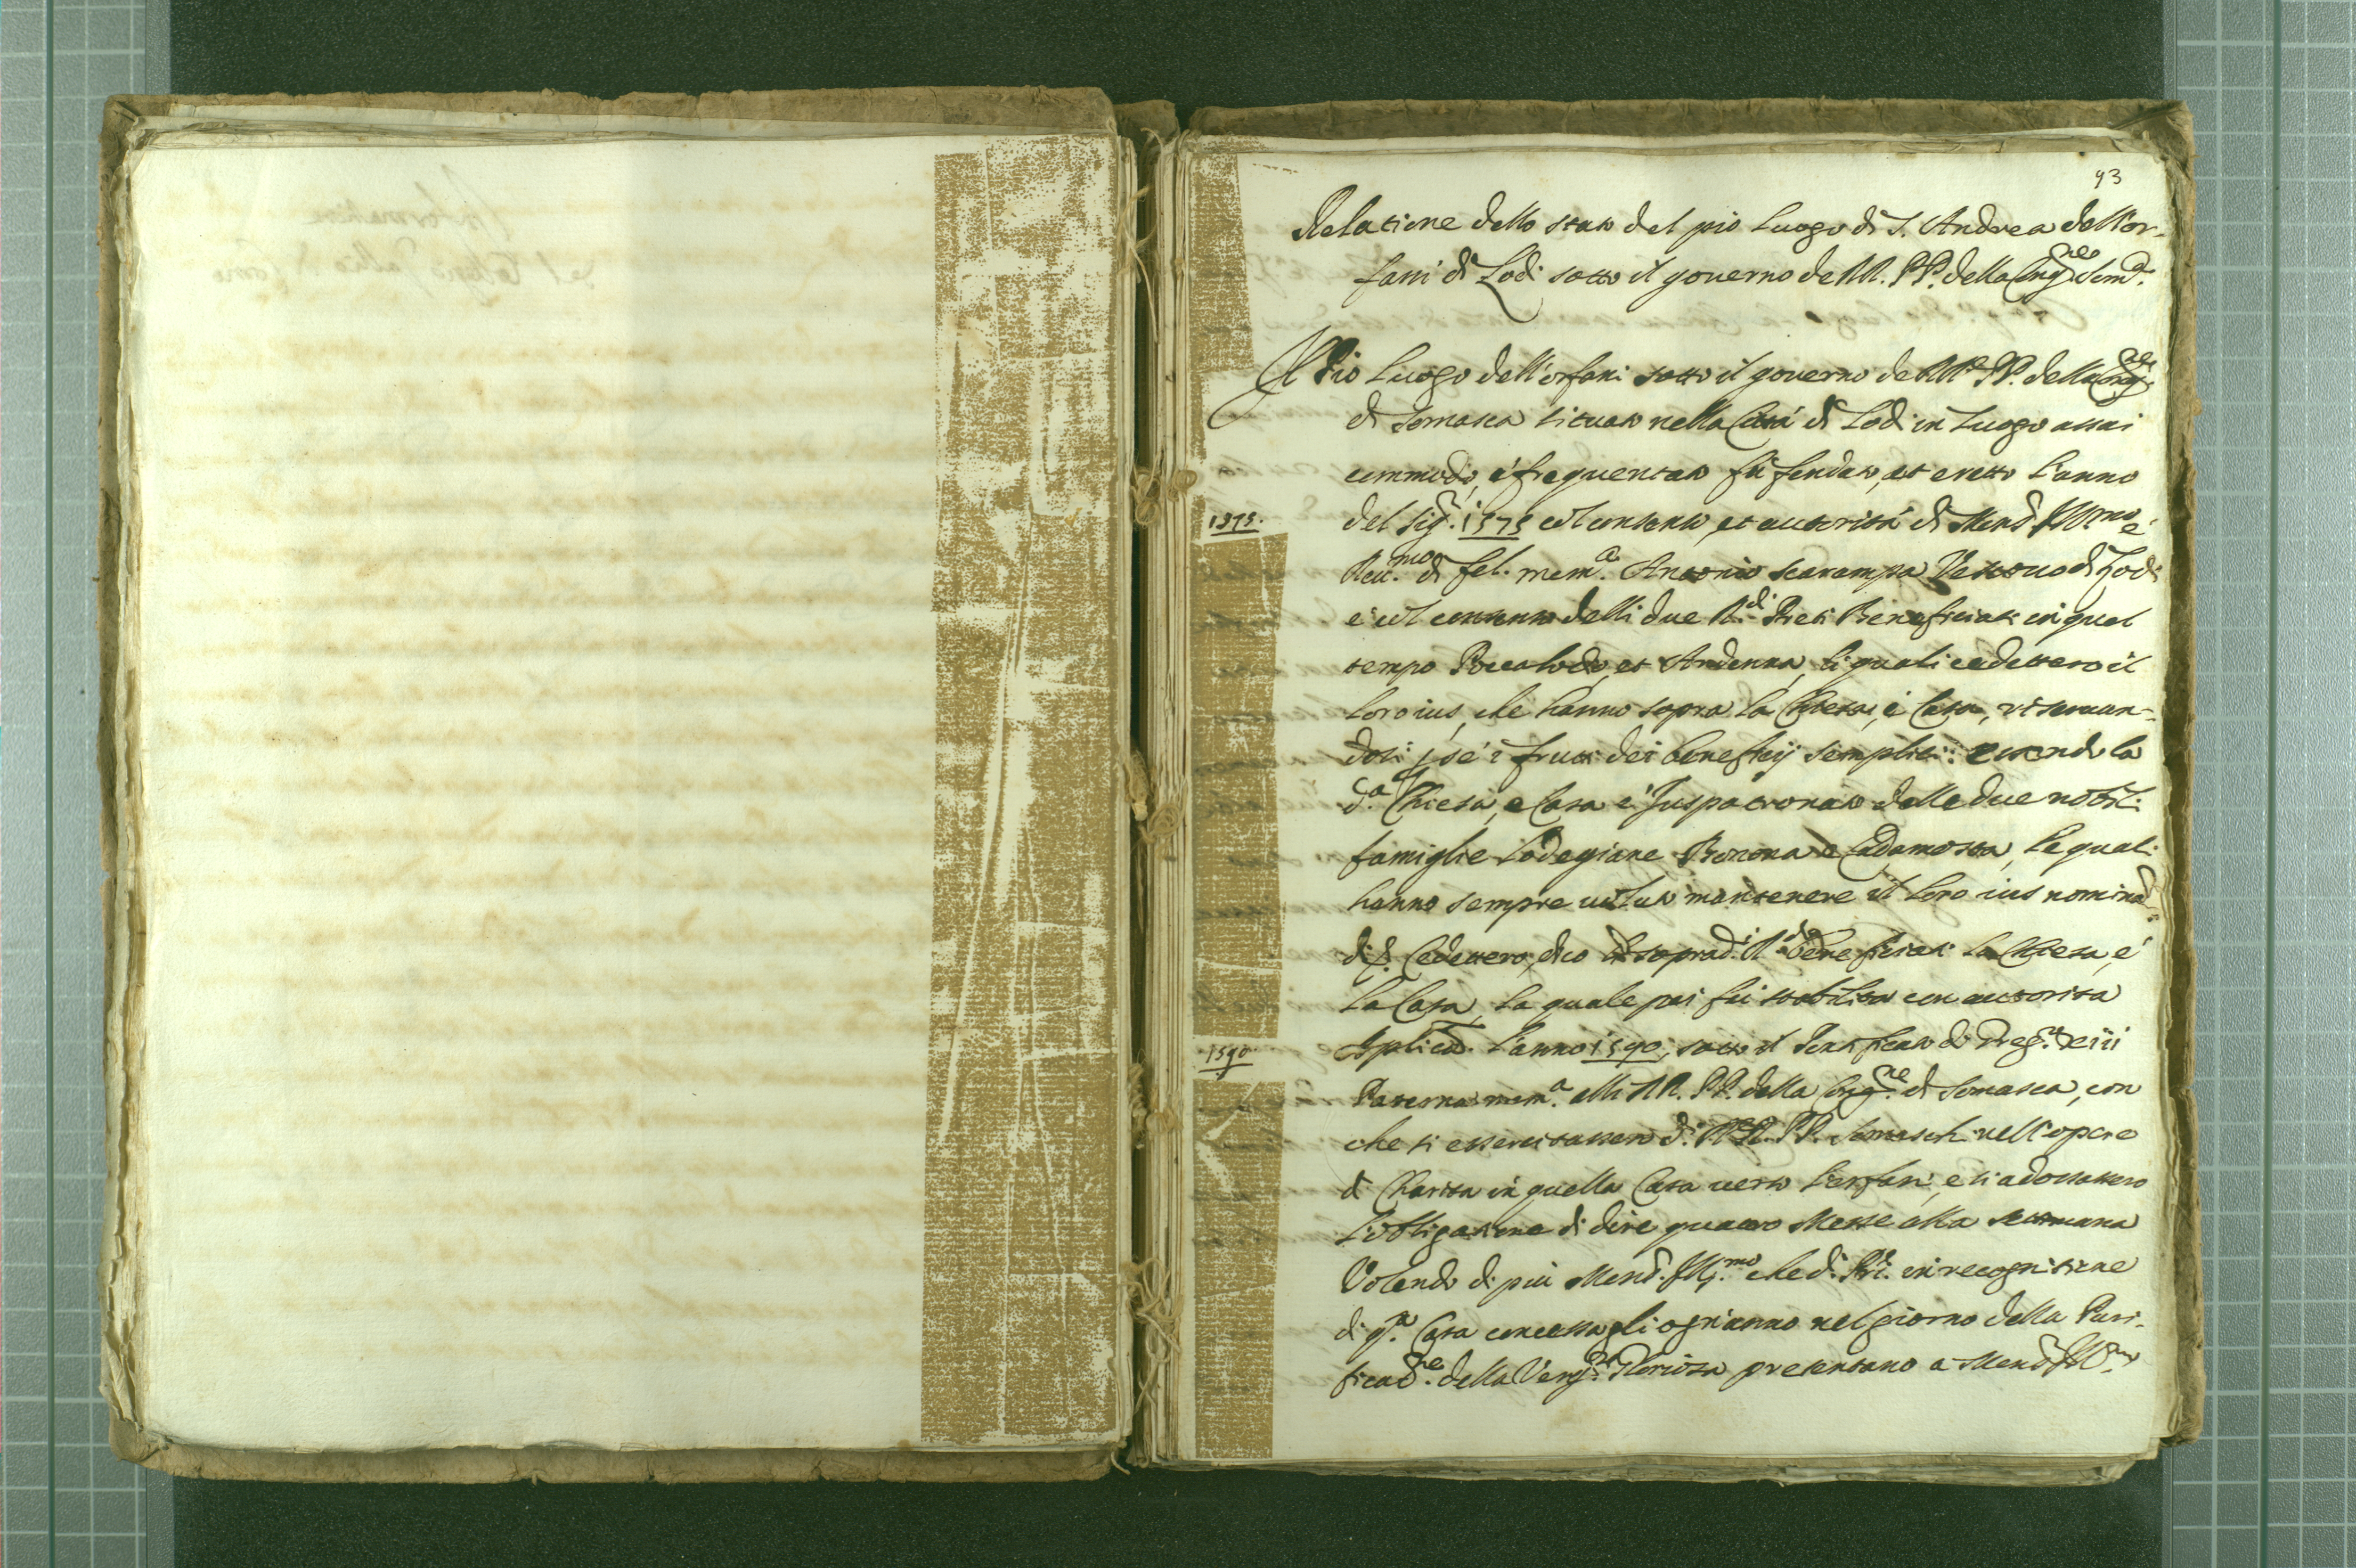 93
Relatione dello stato del pio Luogo di S. Andrea dell'or-
fani di Lodi sotto il governo de RR. PP. della Cong.ne Som.a
Il Pio Luogo dell'orfani sotto il governo de RR. PP. della Cong.ne
di Somasca situato nella Città di Lodi in Luogo assai
commodo, e frequentato fù fondato, et eretto l'anno
1575.
del Sig.r 1575 col consenso, et autorità di Mons.r Ill.mo e
Rev.mo di fel. mem.a Antonio Scarampa Vescovo di Lodi
e col consenso delli due R.di Preti Beneficiati in quel
tempo Boccalodo, et Andenna, li quali cedettero il
loro ius, che hanno sopra la Chiesa, e Casa, riservan-
dosi p se i frutti dei beneficij semplici: essendo la
d.a Chiesa, e Casa è Juspatronato delle due nobili
famiglie Lodegiane Bonona e Cadamosta, le quali
hanno sempre voluto mantenere il loro ius
Cedettero, dico sop.ad.i R.di Beneficiati la Chiesa, e
la Casa, la quale poi fù stabilita con autorità
1590
Ap.lica l'anno 1590, sotto il di Greg.o xiiii
mem.a alli RR. PP. della Cong.ne di Somasca, con
che si essercitassero d.i RR. PP. Somaschi nell'opere
di Charità in quella Casa verso l'orfani, e si adossassero
l'obligatione di dire quattro Messe alla settimana
Volendo di più Mons.r Ill.mo che d.i PP. in recognitione
di q.a Casa concessagli ogn'anno nel giorno della Puri-
ficat.ne della Verg.ne Gloriosa presentano a Mons.r Ill.mo